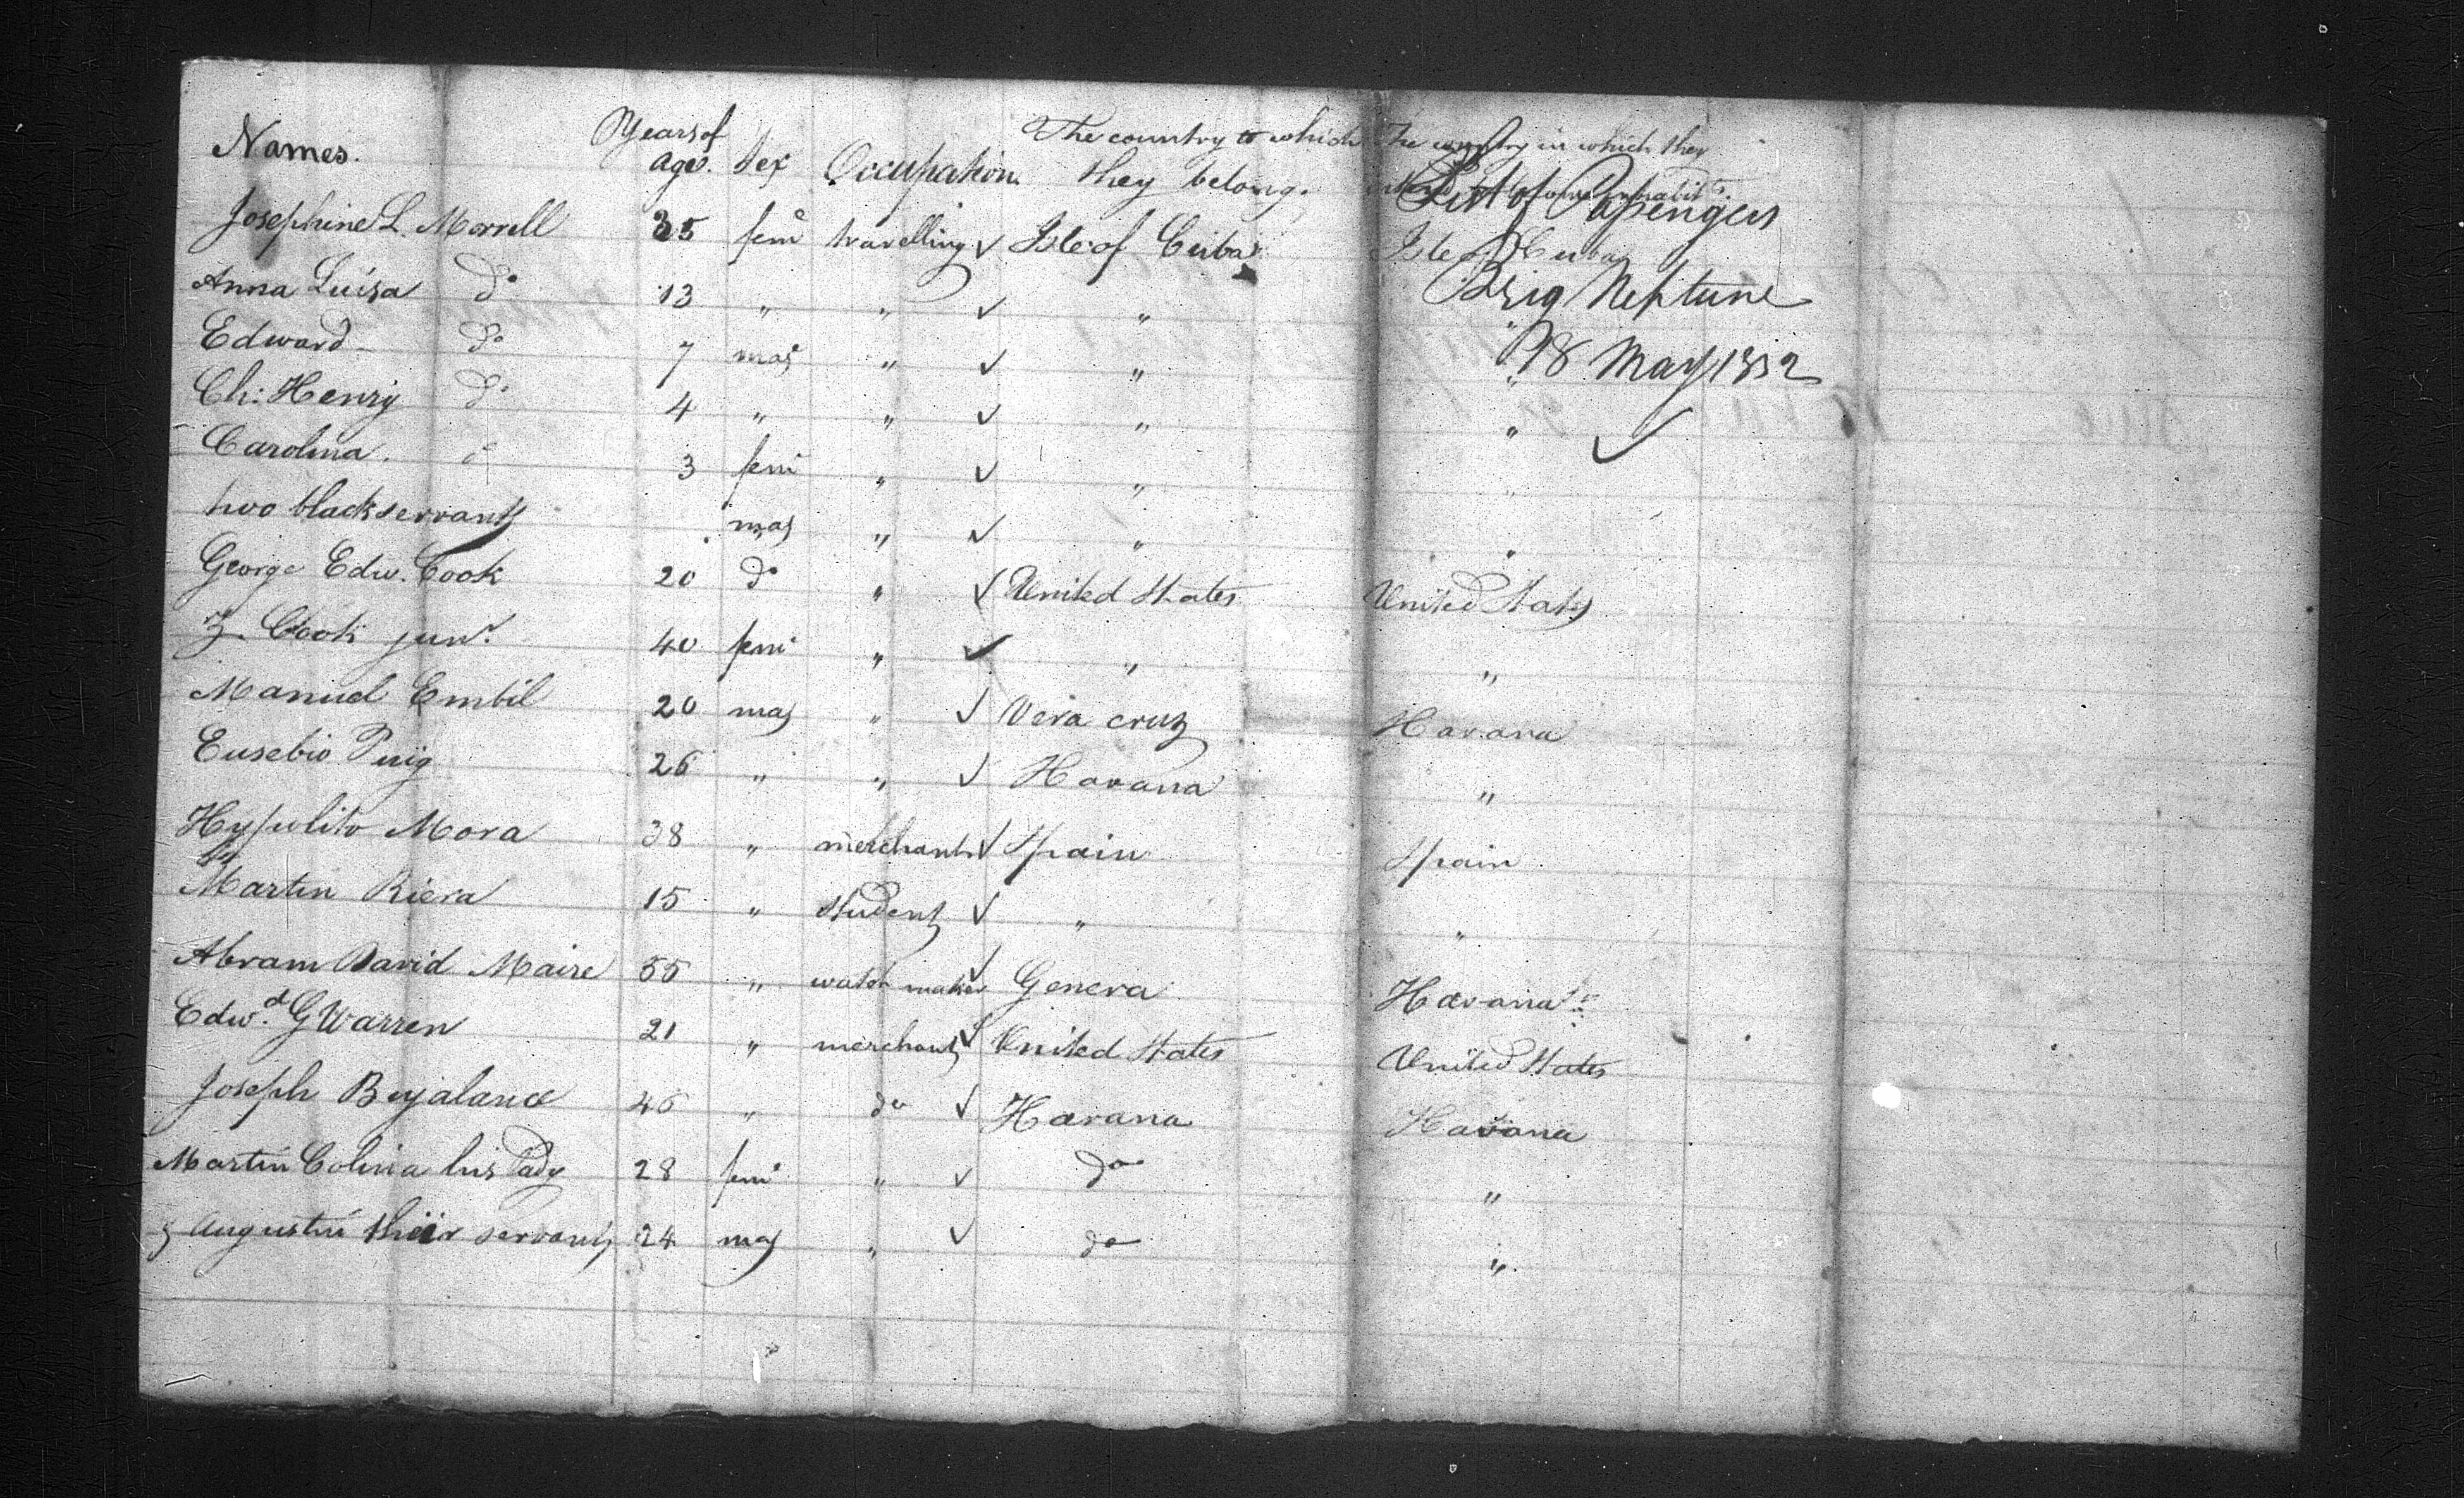 Names. Years of age. Sex Occupation. The country to which they belong. The country in which they intend to become inhabitants.
List of Passengers
Brig Neptune
18 May 1832
Josephine L. Morrell 35 fem travelling ✓ Isle of Cuba Isle of Cuba
Anna Luisa do 13 " " ✓ " "
Edward do 7 mas " ✓ " "
Ch: Henry do 4 " " ✓ " "
Carolina. do 3 fem " ✓ " "
two black servants mas " ✓ " "
George Edw. Cook 20 do " ✓ United States United States
Z. Cook junr. 40 fem " ✓ " "
Manuel Embil 20 mas " ✓ Vera cruz Havana
Eusebio Puig 26 " " ✓ Havana "
Hypolito Mora 38 " merchant ✓ Spain Spain
Martin Riera 15 " student ✓ " "
Abram David Maire 55 " watch maker ✓ Geneva Havana
Edwd. G Warren 21 " merchant ✓ United States United States
Joseph 46 " do ✓ Havana Havana
Martin Colina his Lady 28 fem " ✓ do "
& Augustin their servant 24 mas " ✓ do "